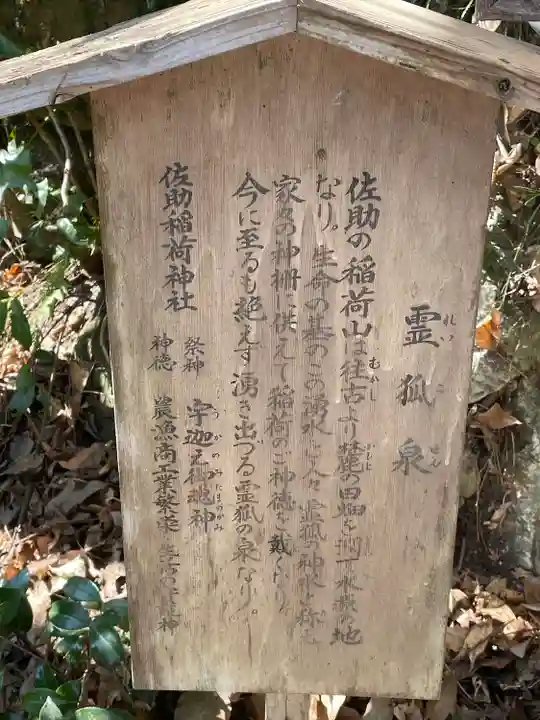 霊狐泉
れいこせん
佐助の稲荷山は往古より麓の田畑を潤す水源の地
むかし ふもと
なり。生命の基のこの湧水を人々霊狐の神水と称え
家々の神棚に供えて稲荷のご神徳を戴くなり。
今に至るも絶えず湧き出づる霊狐の泉なり。
佐助稲荷神社
祭神 宇迦之御魂神
うかのみたまのかみ
神徳 農漁商工業繁栄